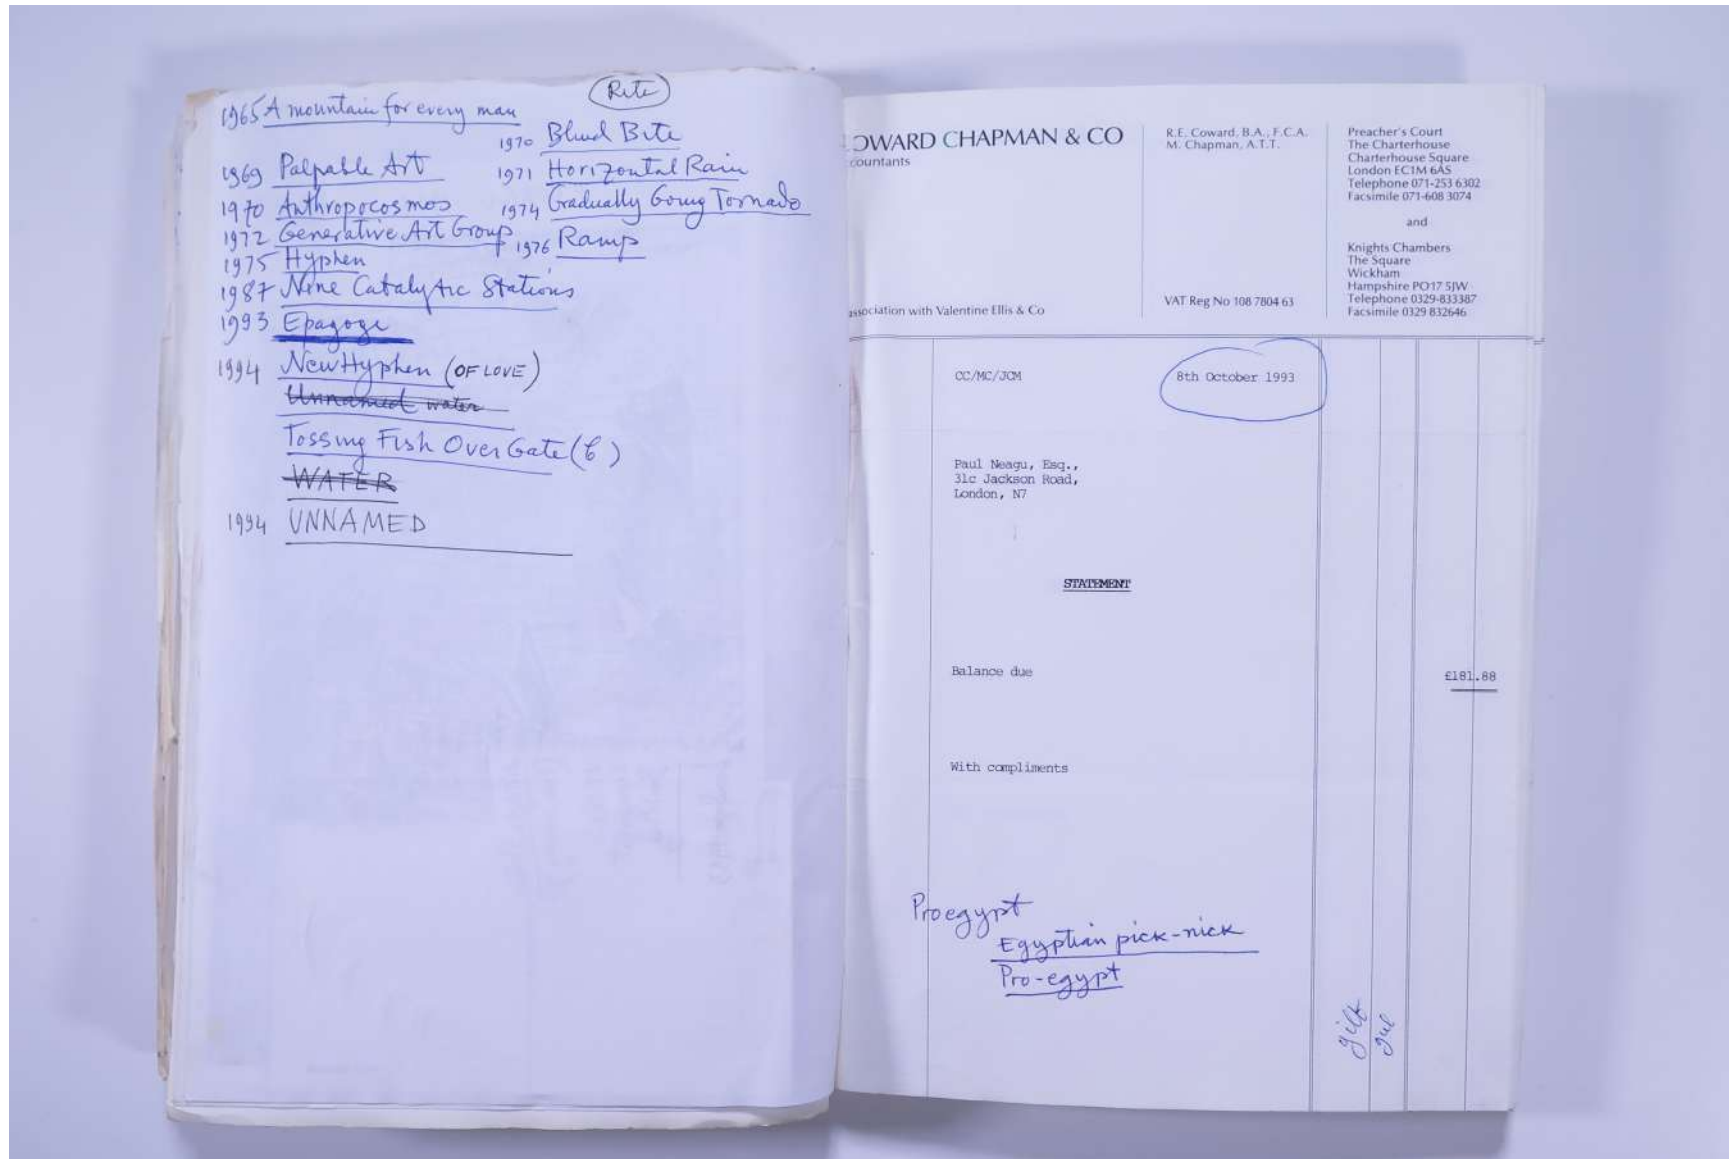 Rite
1965 A mountain for every man
1970 Blind Bite
1969 Palpable Art
1971 Horizontal Rain
1970 Anthropocosmos
1974 Gradually Going Tornado
1972 Generative Art Group
1976 Ramp
1975 Hyphen
1987 Nine Catalytic Stations
1993 Epagoge
1994 New Hyphen (OF LOVE)
Unnamed water
Tossing Fish Over Gate (6)
WATER
1994 UNNAMED
OWARD CHAPMAN & CO
countants
association with Valentine Ellis & Co
R.E. Coward, B.A., F.C.A.
M. Chapman, A.T.T.
VAT Reg No 108 7804 63
Preacher's Court
The Charterhouse
Charterhouse Square
London EC1M 6AS
Telephone 071-253 6302
Facsimile 071-608 3074
and
Knights Chambers
The Square
Wickham
Hampshire PO17 5JW
Telephone 0329-833387
Facsimile 0329 832646
CC/MC/JCM
8th October 1993
Paul Neagu, Esq.,
31c Jackson Road,
London, N7
STATEMENT
Balance due £181.88
With compliments
Proegypt
Egyptian pick-nick
Pro-egypt